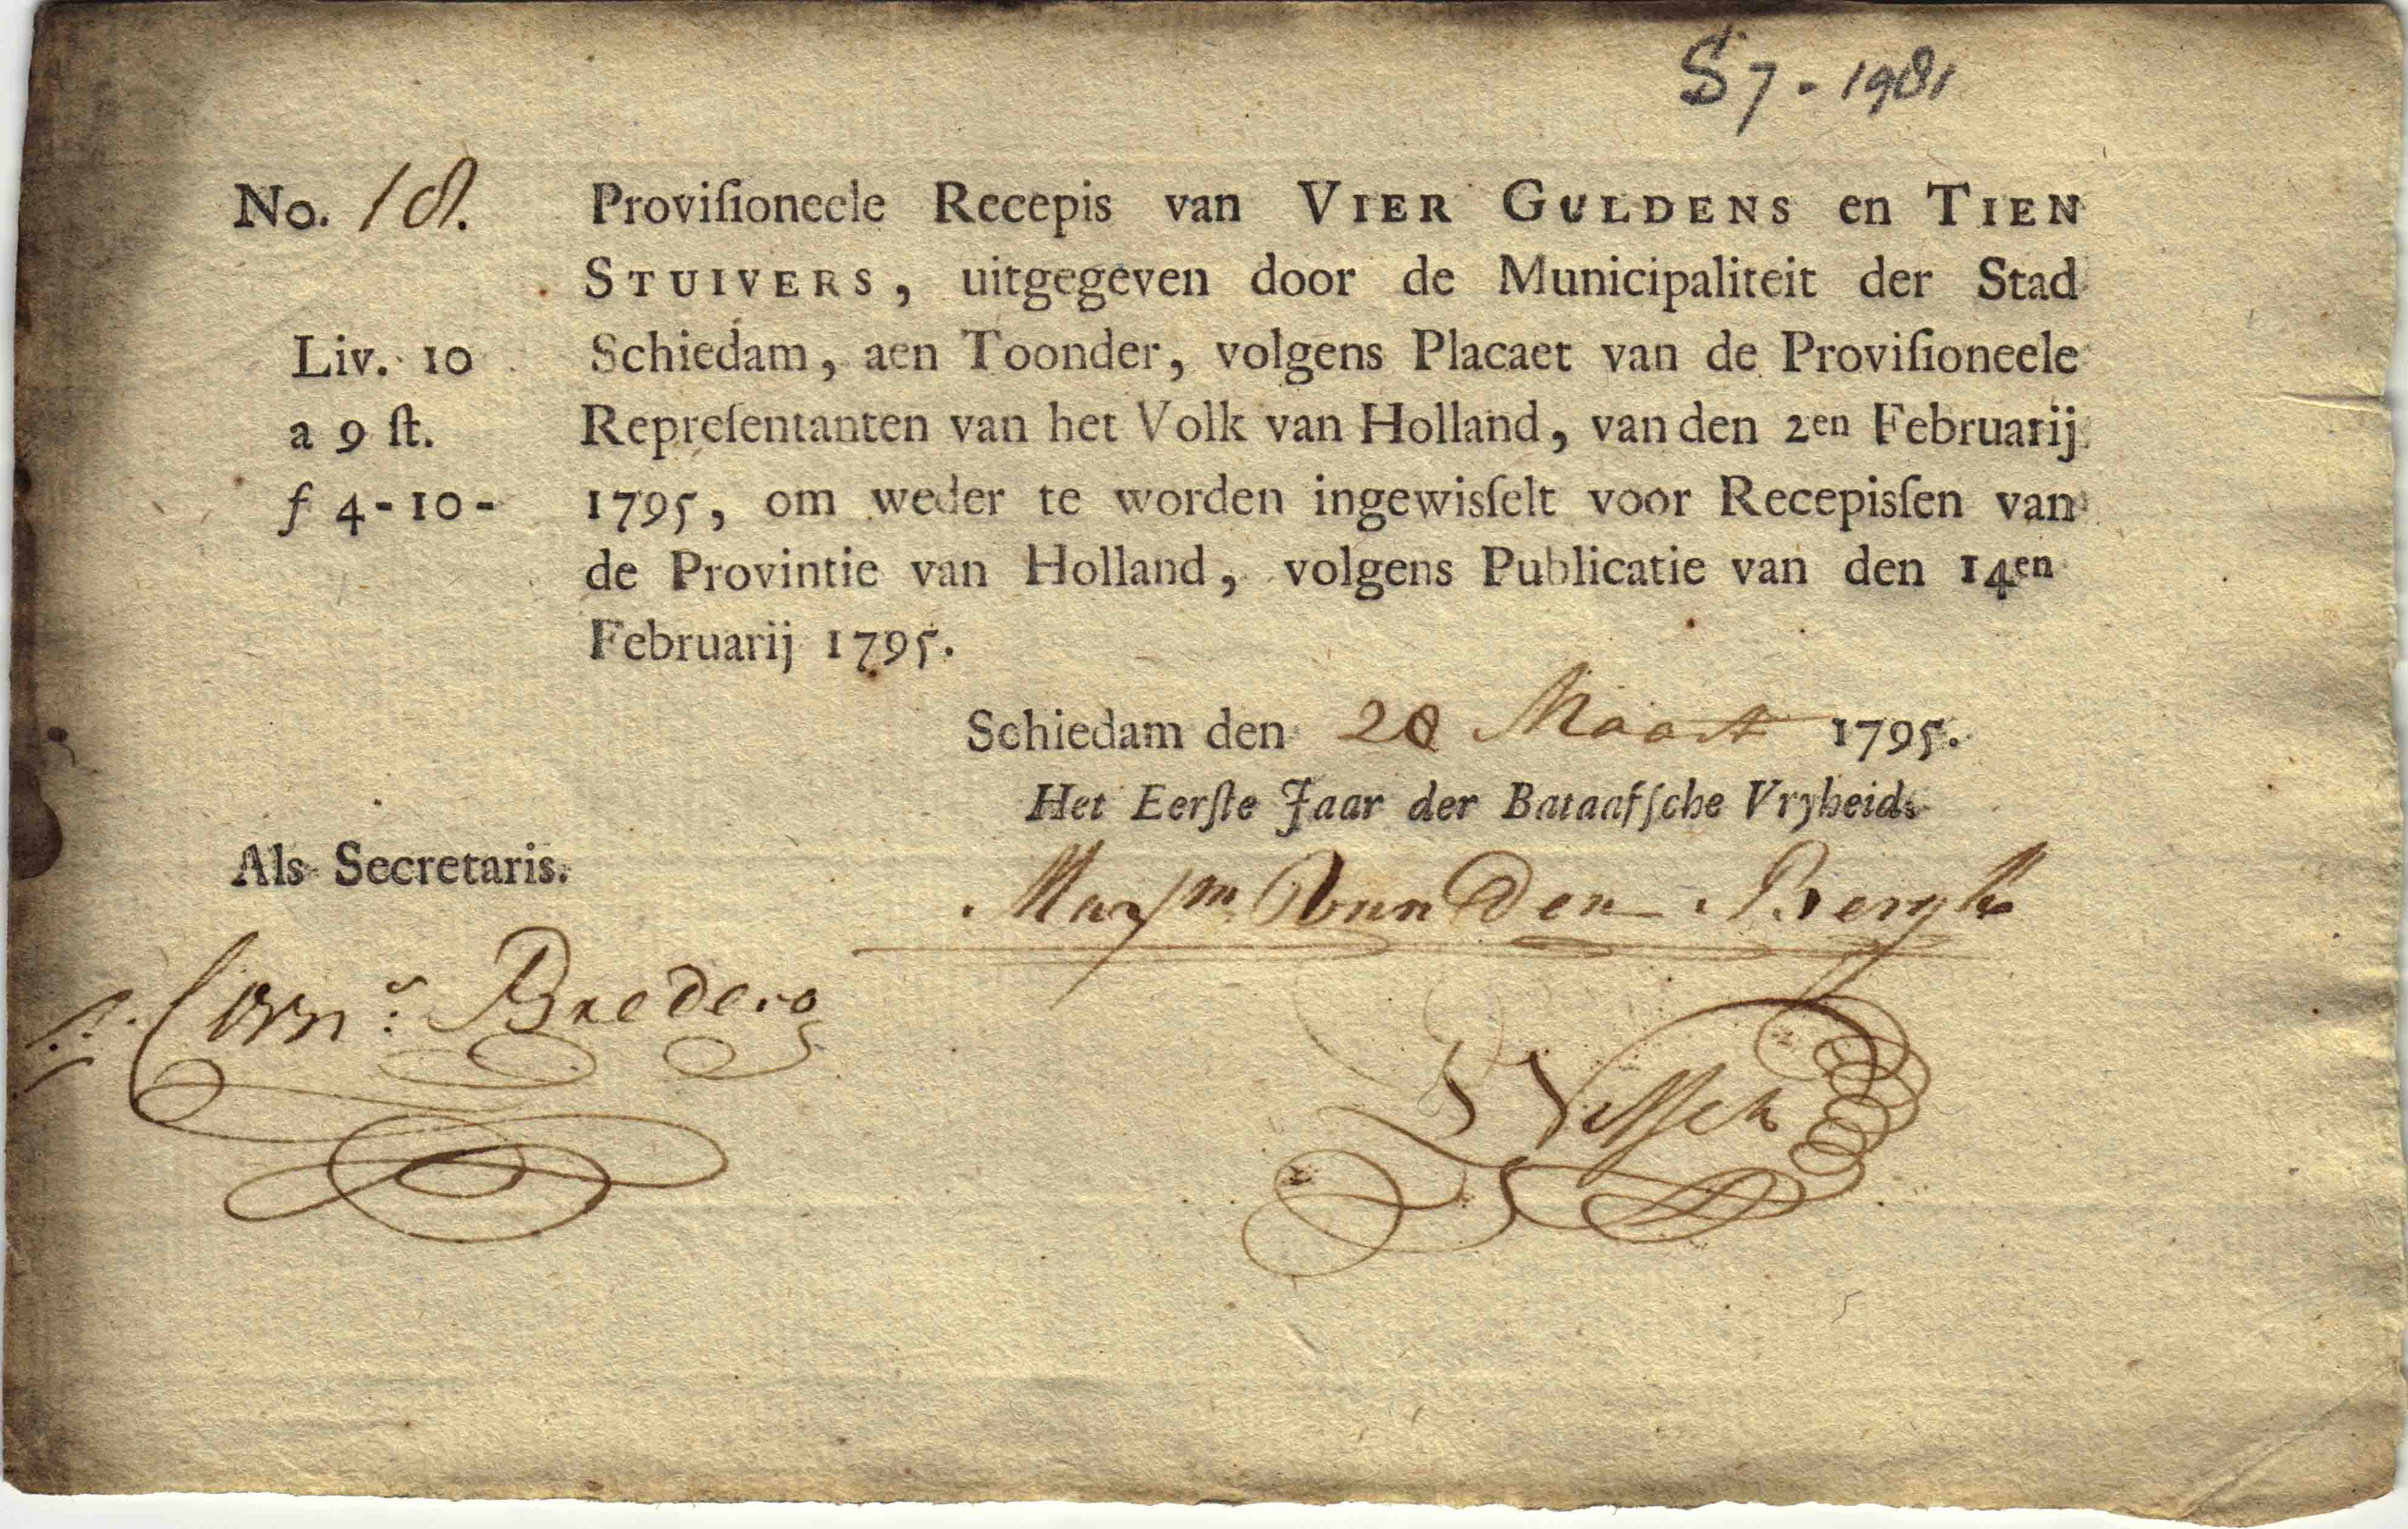 S7-1981
No. 18. Proviſioneele Recepis van VIER GULDENS en TIEN
STUIVERS, uitgegeven door de Municipaliteit der Stad
Liv. 10 Schiedam, aen Toonder, volgens Placaet van de Proviſioneele
a 9 ſt. Repreſentanten van het Volk van Holland, van den 2en Februarij
f 4-10- 1795, om weder te worden ingewisſelt voor Recepisſen van
de Provintie van Holland, volgens Publicatie van den 14en
Februarij 1795.
Schiedam den 28 Maart 1795.
Het Eerſte Jaar der Bataafſche Vryheid.
Als Secretaris.
Van Den Bergh
Corn:s Bredero
Visſch